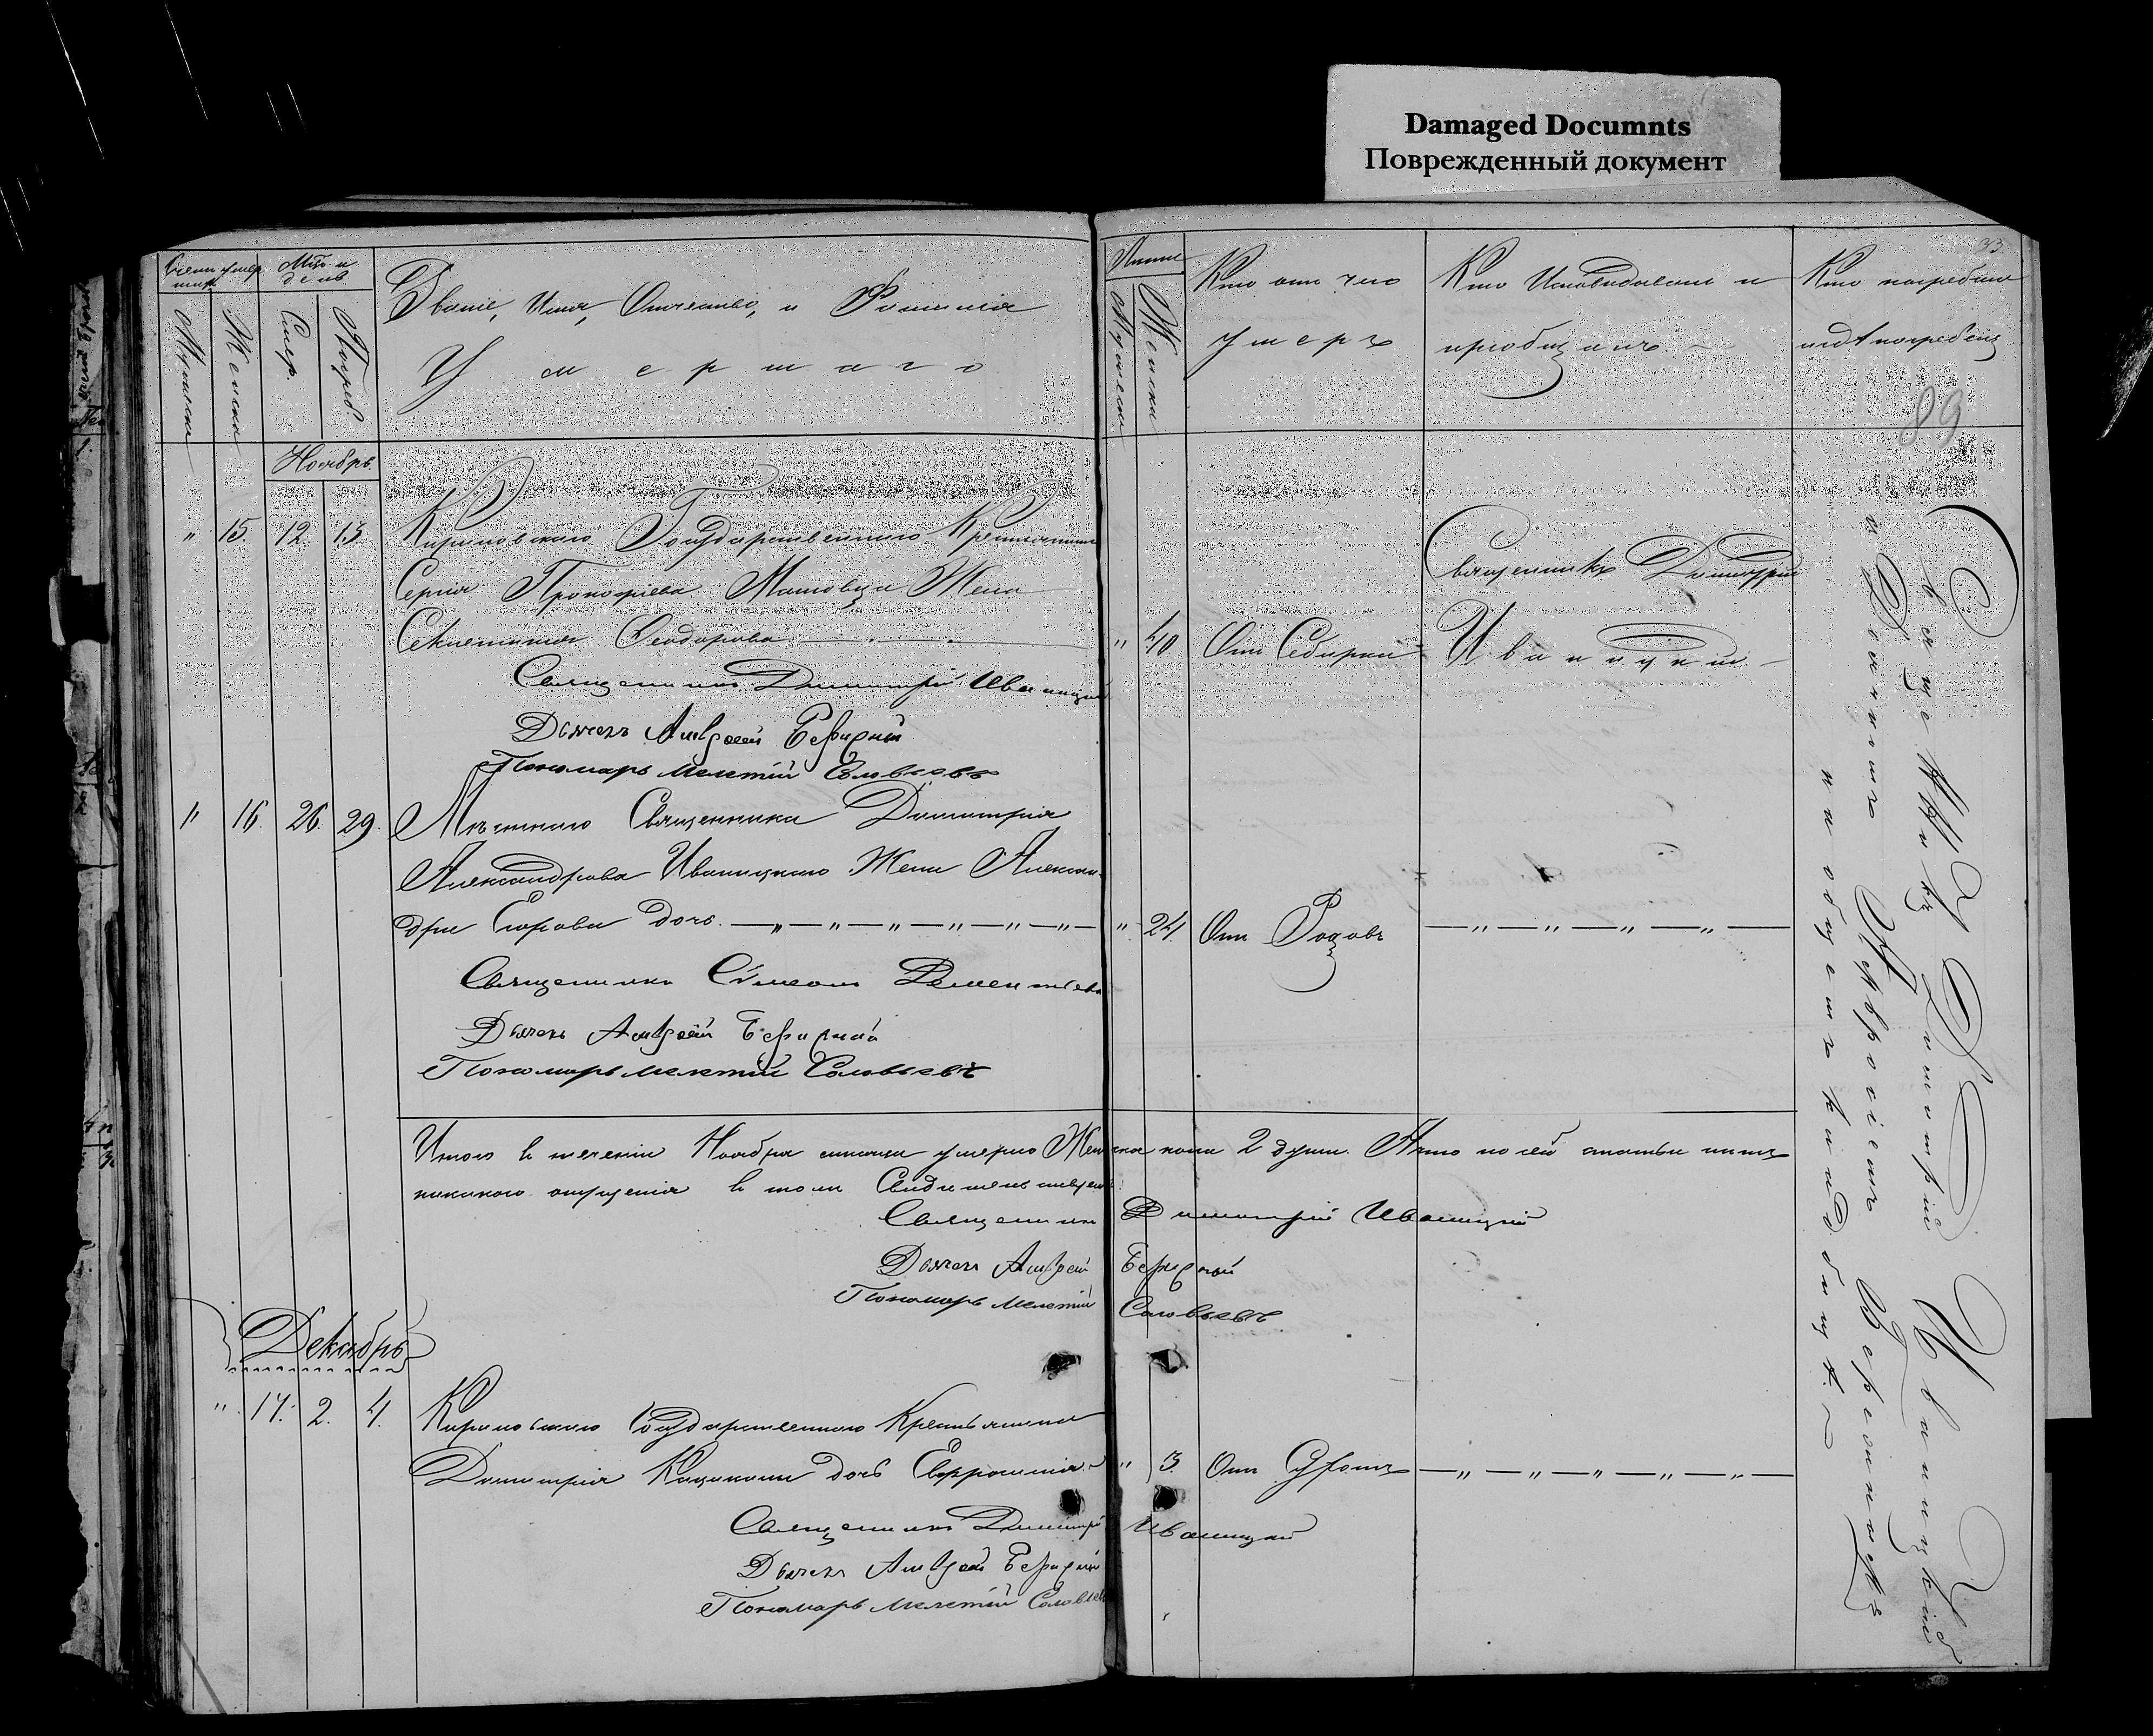 Damaged Documnts
Поврежденный документ
33
89
Счетъ умер
шихъ
Мѣс. и
день
Мужеска
Женска
Смер.
Погреб.
Званіе, Имя, Отчество, и Фамилія
Умершаго
Лѣта
Мужеска
Женска
Кто отъ чего
умеръ
Кто Исповѣдывалъ и
пріобщалъ.
Кто погребалъ
и гдѣ погребенъ
Ноябрь.
" 15. 12. 13. Государственнаго Крестьянина
Сергія Прокофіева Жена
Ѳеодорова " 40
Священникъ Димитрій
Иваницкій
Священникъ Димитрій Иваницкій
Дьячекъ Андрей
Пономарь Мелетій Соловьевъ
" 16. 26. 29. Мѣстнаго Священника Димитрія
Александрова Иваницкаго Жена Алексан-
дра Егорова дочь. " 24. Отъ Родовъ
Священникъ Сѵмеонъ
Дьячекъ Андрей
Пономарь Мелетій Соловьевъ
Итого въ теченіи Ноября мѣсяца умерло Женска пола 2 души. А что по сей статьи нѣтъ
никакого опущенія въ томъ Свидѣтельствуемъ
Священникъ Димитрій Иваницкій
Дьячекъ Андрей
Пономарь Мелетій Соловьевъ
Декабрь
" 17. 2. 4. Государственнаго Крестьянина
Димитрія дочь Евфросинія " 3.
Священникъ Димитрій Иваницкій
Дьячекъ Андрей
Пономарь Мелетій Соловьевъ
Священникъ Димитрій Иваницкій
на общемъ кладбищѣ.